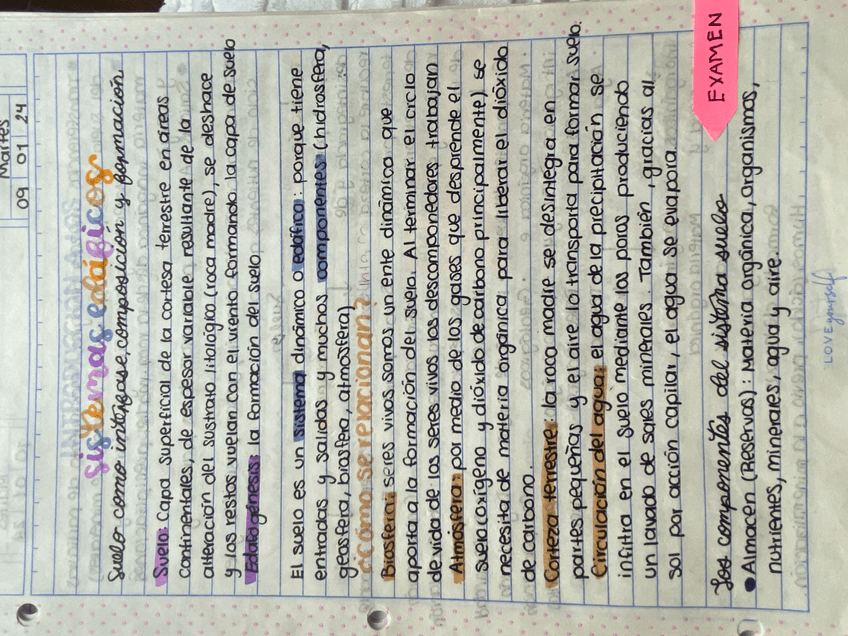 Martes
09 01 24
sistemas edáficos
Suelo como interfase, composición y formación
Suelo: Capa superficial de la cortesa terrestre en áreas
continentales, de espesor variable resultante de la
alteración del sustrato litológico (roca madre), se deshace
y los restos vuelan con el viento formando la capa de suelo
Edafogénesis: la formación del suelo
El suelo es un sistema dinámico o edáfico: porque tiene
entradas y salidas y muchos componentes (hidrosfera,
geosfera, biosfera, atmosfera)
¿Cómo se relacionan?
Biosfera: seres vivos somos un ente dinámico que
aporta a la formación del suelo. Al terminar el ciclo
de vida de los seres vivos los descomponedores trabajan
Atmosfera: por medio de los gases que desprende el
suelo (oxígeno y dióxido de carbono principalmente) se
necesita de materia orgánica para liberar el dióxido
de carbono.
Corteza terrestre: la roca madre se desintegra en
partes pequeñas y el aire lo transporta para formar suelo.
Circulación del agua: el agua de la precipitación se
infiltra en el suelo mediante los poros produciendo
un lavado de sales minerales. También, gracias al
sol por acción capilar, el agua se evapora.
EXAMEN
Los componentes del sistema suelo
• Almacén (Reservas): Materia orgánica, organismos,
nutrientes, minerales, agua y aire.
LOVE yourself